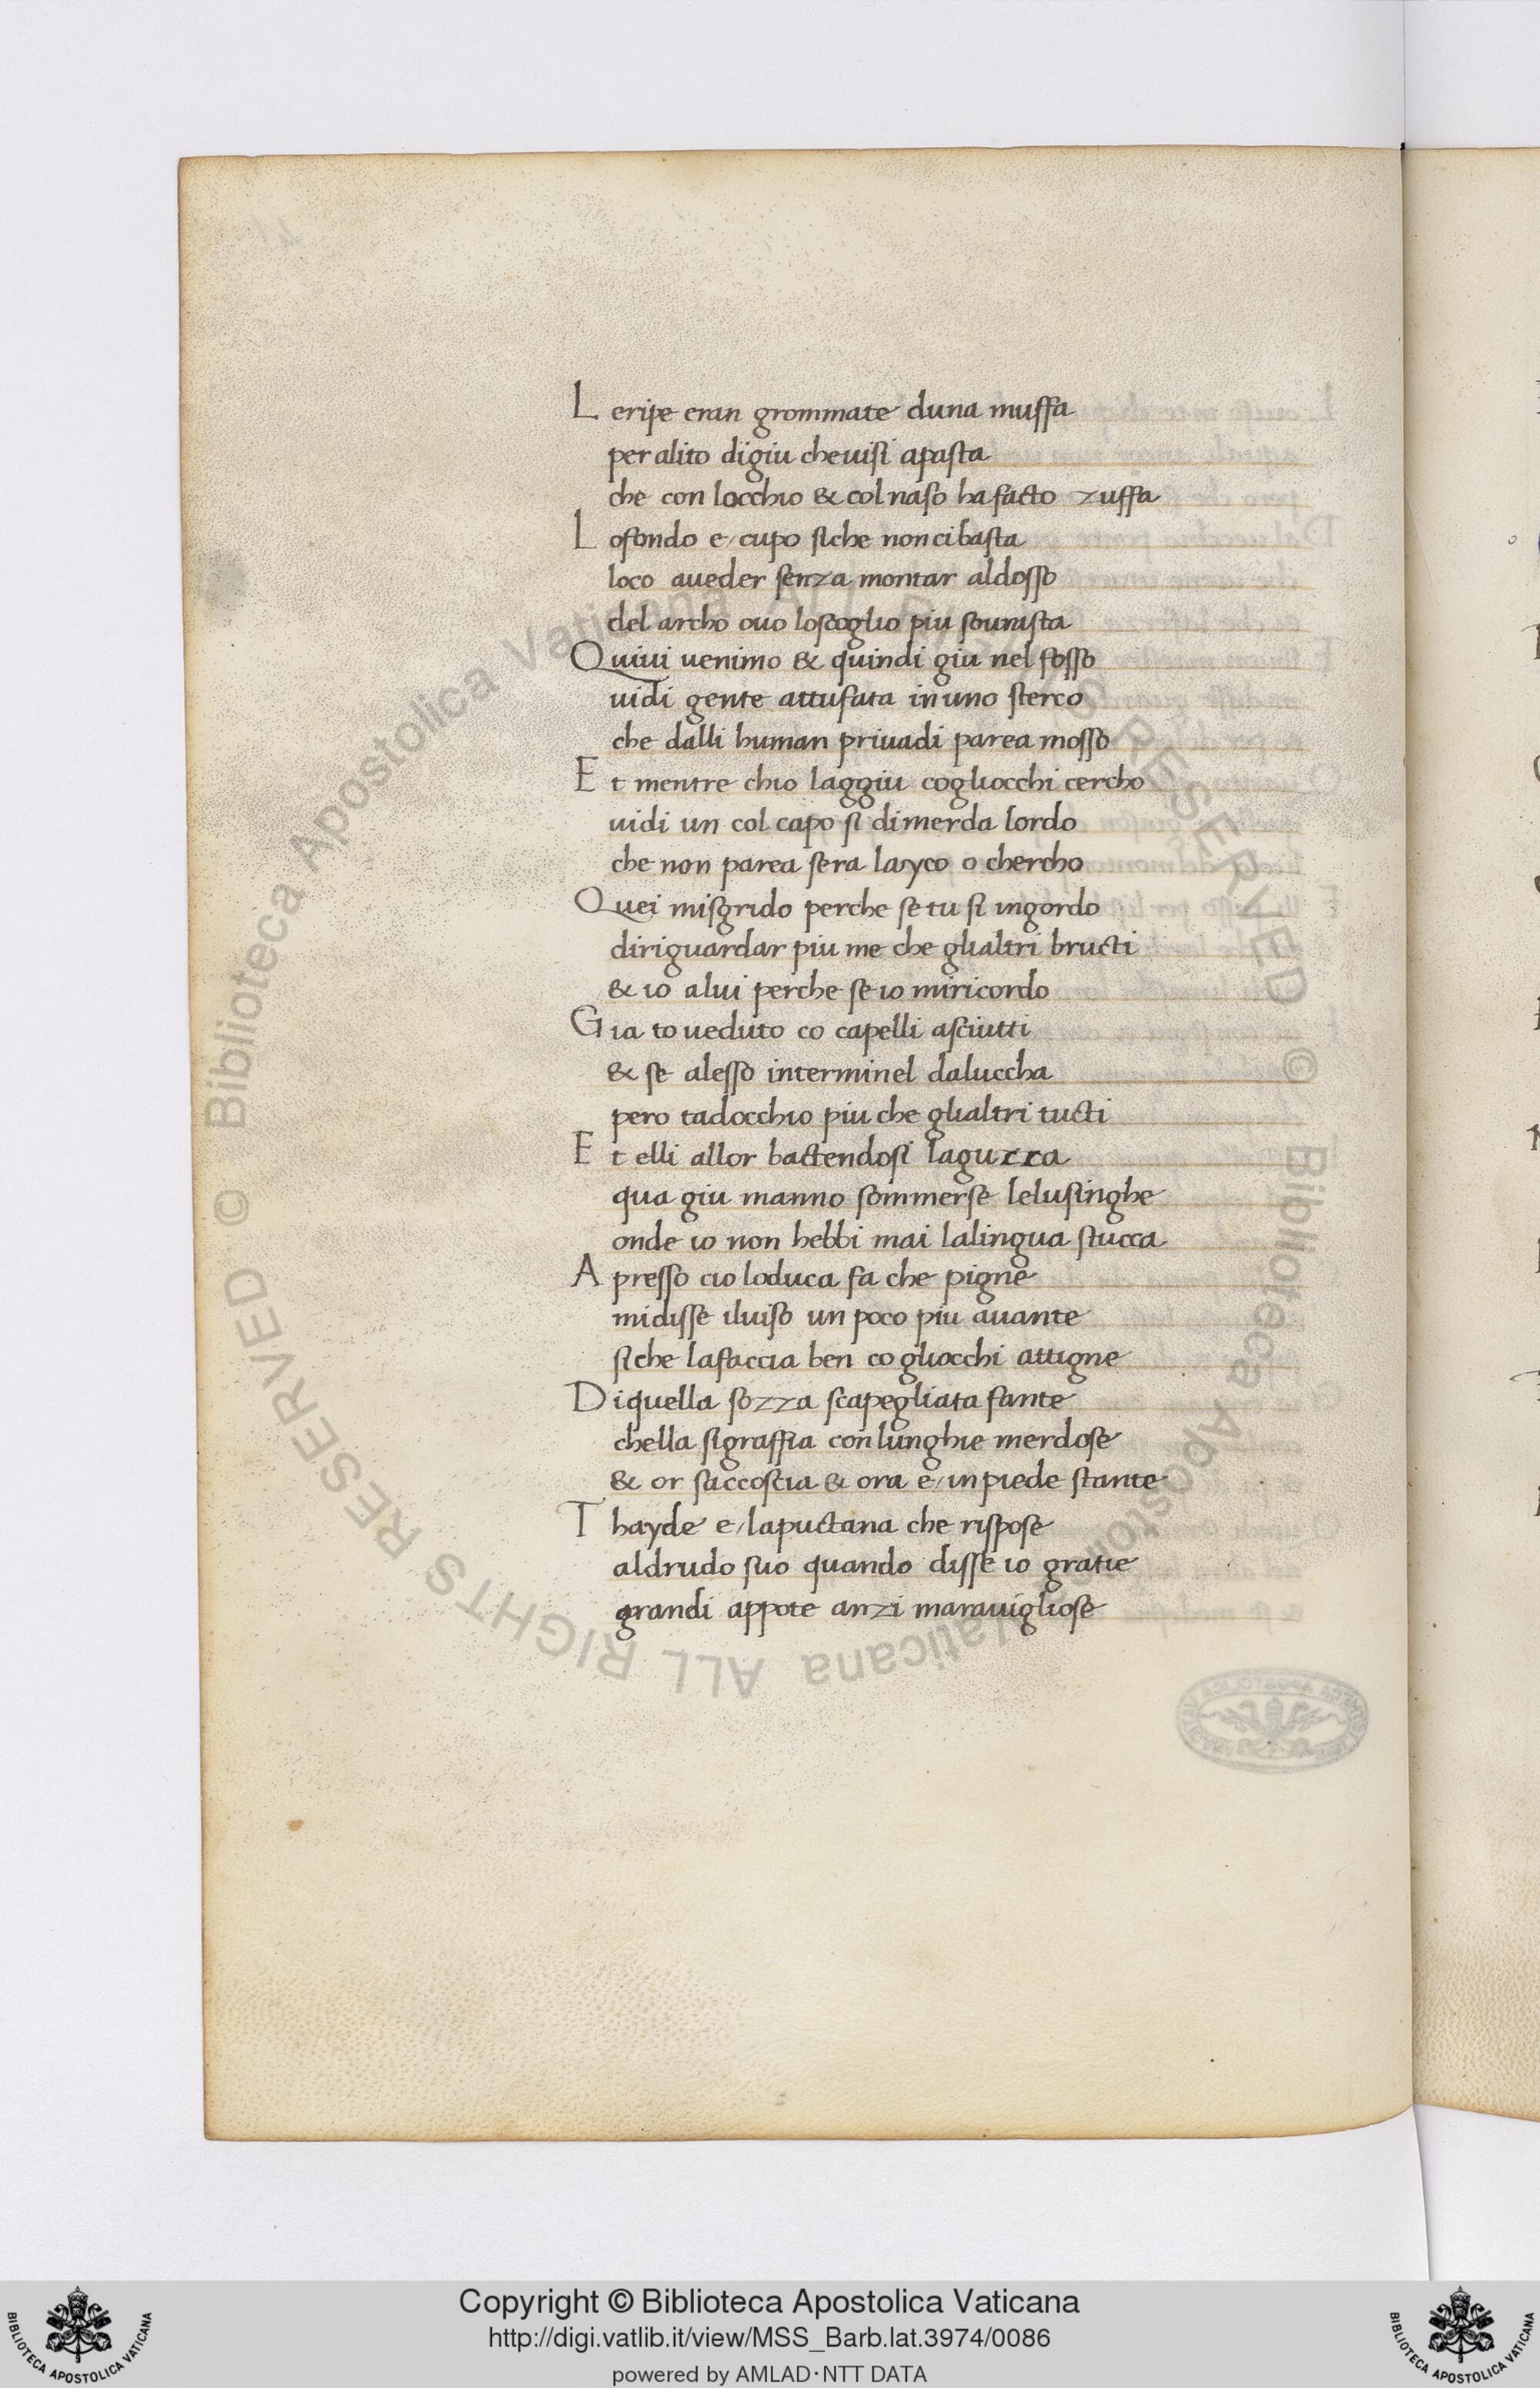 L eripe eran grommate duna muffa
per alito digiu cheuisi apasta
che con locchio & col naso ha facto zuffa
L ofondo e/cupo siche non ci basta
loco aueder senza montar aldosso
del archo ouo loscoglio piu sourasta
Quiui uenimo & quindi giu nel fosso
uidi gente attufata in uno sterco
che dalli human priuadi parea mosso
E t mentre chio laggiu cogliocchi cercho
uidi un col capo si di merda lordo
che non parea sera layco o chercho
Quei misgrido perche se tu si ingordo
diriguardar piu me che glialtri bructi
& io alui perche se io miricordo
G ia to ueduto co capelli asciutti
& se alesso interminel daluccha
pero tadocchio piu che glialtri tucti
E t elli allor bactendosi lagucca
qua giu manno sommerse lelusinghe
onde io non hebbi mai lalingua stucca
A presso cio loduca fa che pigne
midisse iluiso un poco piu auante
siche lafaccia ben co gliocchi attigne
D iquella sozza scapegliata fante
chella sigraffia con lunghie merdose
& or saccoscia & ora e/in piede stante
T hayde e/lapuctana che rispose
aldrudo suo quando disse io gratie
grandi appote anzi marauigliose
Copyright © Biblioteca Apostolica Vaticana
http://digi.vatlib.it/view/MSS_Barb.lat.3974/0086
powered by AMLAD·NTT DATA
BIBLIOTECA APOSTOLICA VATICANA
BIBLIOTECA APOSTOLICA VATICANA
© Biblioteca Apostolica Vaticana ALL RIGHTS RESERVED © Biblioteca Apostolica Vaticana ALL RIGHTS RESERVED